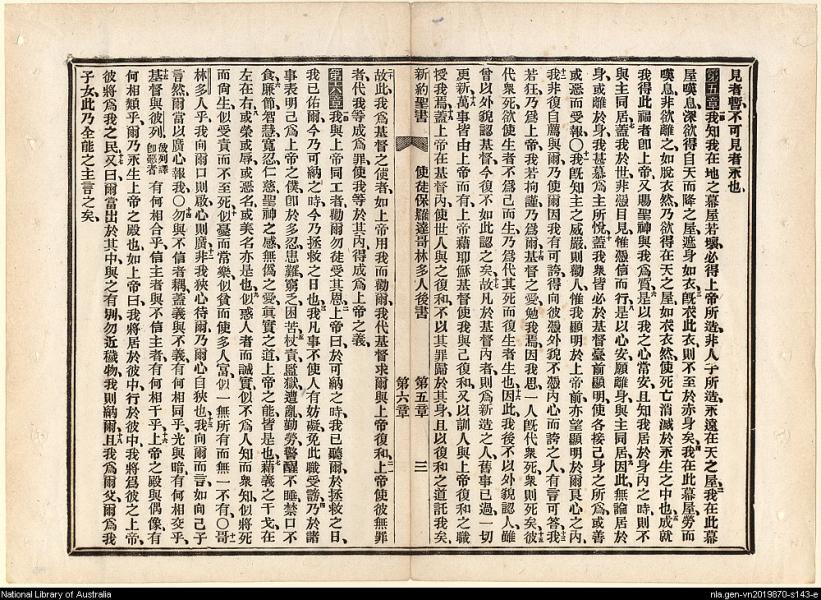 見者暫、不可見者永也、
第五章 我知我在地之幕屋若壞、必得上帝所造、非人手所造、永遠在天之屋、我在此幕
屋嘆息、深欲得自天而降之屋遮身如衣、旣衣此衣、則不至於赤身矣、我在此幕屋勞而
嘆息、非欲離之如脫衣然、乃欲得在天之屋如衣衣然、使死亡消滅於永生之中也、成就
我得此福者、卽上帝、又賜聖神與我爲質、是以我之心常安、且知我居於身內之時、則不
與主同居、蓋我於世、非憑目見、惟憑信而行、是以心安願離身與主同居、因此無論居於
身、或離於身、我甚慕爲主所悅、蓋我衆皆必於基督臺前顯明、使各接己身之所爲、或善
或惡而受報、○我旣知主之威嚴、則勸人、惟我顯明於上帝前、亦望顯明於爾良心之內、
我非復自薦與爾、乃使爾因我有可誇、得向彼憑外貌不憑內心而誇之人、有言可答、我
若狂、乃爲上帝、我若拘謹、乃爲爾、基督之愛勉我、爲因我思一人旣代衆死、衆則死矣、彼
代衆死、欲使生者不爲己而生、乃爲代其死而復生者生也、因此我後不以外貌認人、雖
曾以外貌認基督、今復不如此認之矣、故凡於基督內者、則爲新造之人、舊事已過、一切
更新、萬事皆由上帝而有、上帝藉耶穌基督使我與己復和、又以訓人與上帝復和之職
授我焉、蓋上帝在基督內、使世人與之復和、不以其罪歸於其身、且以復和之道託我矣、
新約聖書 使徒保羅達哥林多人後書 第五章 第六章 三
故此我爲基督之使者、如上帝用我而勸爾、我代基督求爾與上帝復和、上帝使彼無罪
者、代我等成爲罪、使我等於其內得成爲上帝之義、
第六章 我與上帝同工者、勸爾勿徒受其恩、上帝曰、於可納之時我已聽爾、於拯救之日、
我已佑爾、今乃可納之時、今乃拯救之日也、我凡事不使人有妨礙、免此職受謗、乃於諸
事表明己爲上帝之僕、卽於多忍、患難、窮乏、困苦、杖責、監獄、遭亂、勤勞、警醒、不睡、禁口不
食、廉節、智慧、寬忍、仁慈、聖神之感、無僞之愛、眞實之道、上帝之能、皆是也、藉義之干戈在
左在右、或榮或辱、或惡名或美名、亦是也、似惑人者而誠實、似不爲人知而衆知、似將死
而尙生、似受責而不至死、似憂而常樂、似貧而使多人富、似一無所有而無一不有、○哥
林多人乎、我向爾口則啟、心則廣、非我狹心待爾、乃爾心自狹也、我向爾而言、如向己子
言然、爾當以廣心報我、○勿與不信者耦、蓋義與不義有何相同乎、光與暗有何相交乎、
基督與彼列 彼列譯卽惡者 有何相合乎、信主者與不信主者有何相干乎、上帝之殿與偶像有
何相類乎、爾乃永生上帝之殿也、如上帝曰、我將居於彼中、行於彼中、我將爲彼之上帝、
彼將爲我之民、又曰、爾當出於其中、與之有別、勿近穢物、我則納爾、且我爲爾父、爾爲我
子女、此乃全能之主言之矣、
National Library of Australia
nla.gen-vn2019870-s143-e